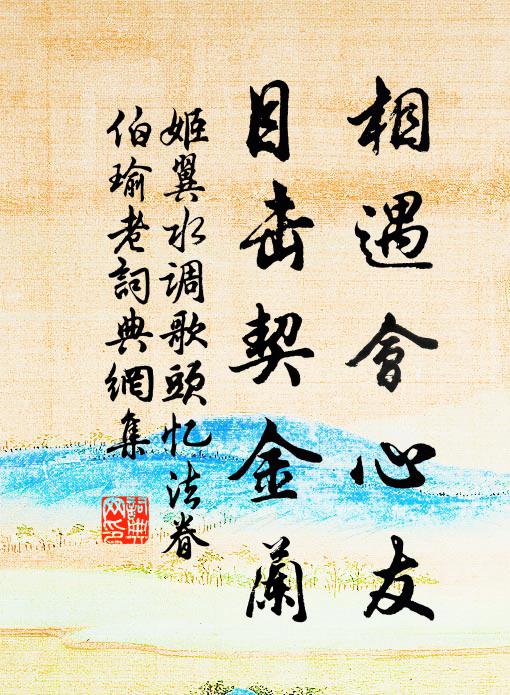 相遇會心友
目击契金蘭
姬翼水调歌頭忆法眷
伯瑜老詞典網集